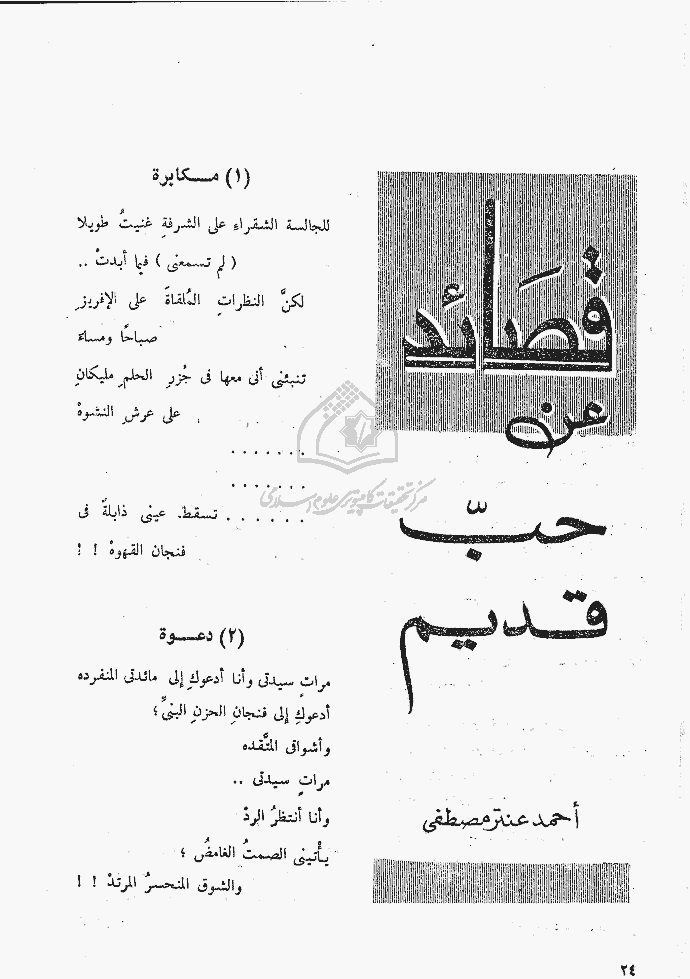 قصائد
عن
حبّ
قديم
أحمد عنتر مصطفى
(١) مـــكابرة
للجالسة الشقراءِ على الشرفةِ غنيتُ طويلا
( لم تسمعنى ) فيما أبدتْ ..
لكنَّ النظراتِ المُلقاةَ على الإفريزِ
صباحًا ومساءً
تنبئنى أنى معها فى جُزرِ الحلمِ مليكانِ
على عرشِ النشوهْ
. . . . . . .
. . . . . . .
. . . . . . . تسقط عينى ذابلةً فى
فنجان القهوهْ ! !
(٢) دعـــوة
مراتٍ سيدتى وأنا أدعوكِ إلى مائدتى المنفرده
أدعوكِ إلى فنجانِ الحزنِ البنىِّ ؛
وأشواقى المتَّقده
مراتٍ سيدتى ..
وأنا أنتظرُ الردْ
يأْتينى الصمتُ الغامضُ ؛
والشوق المنحسرُ المرتدْ ! !
مرکز تحقیقات کامپیوتری علوم اسلامی
٢٤